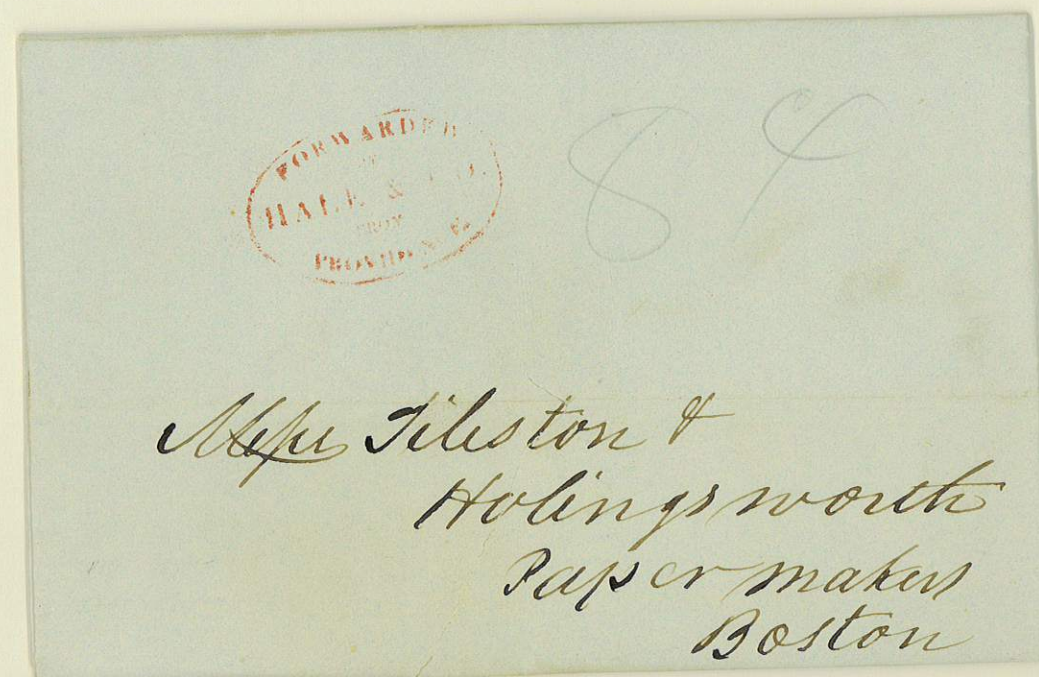 FORWARDED
BY
HALE & CO.
FROM
PROVIDENCE.
84
Messrs Tileston &
Holingsworth
Paper makers
Boston